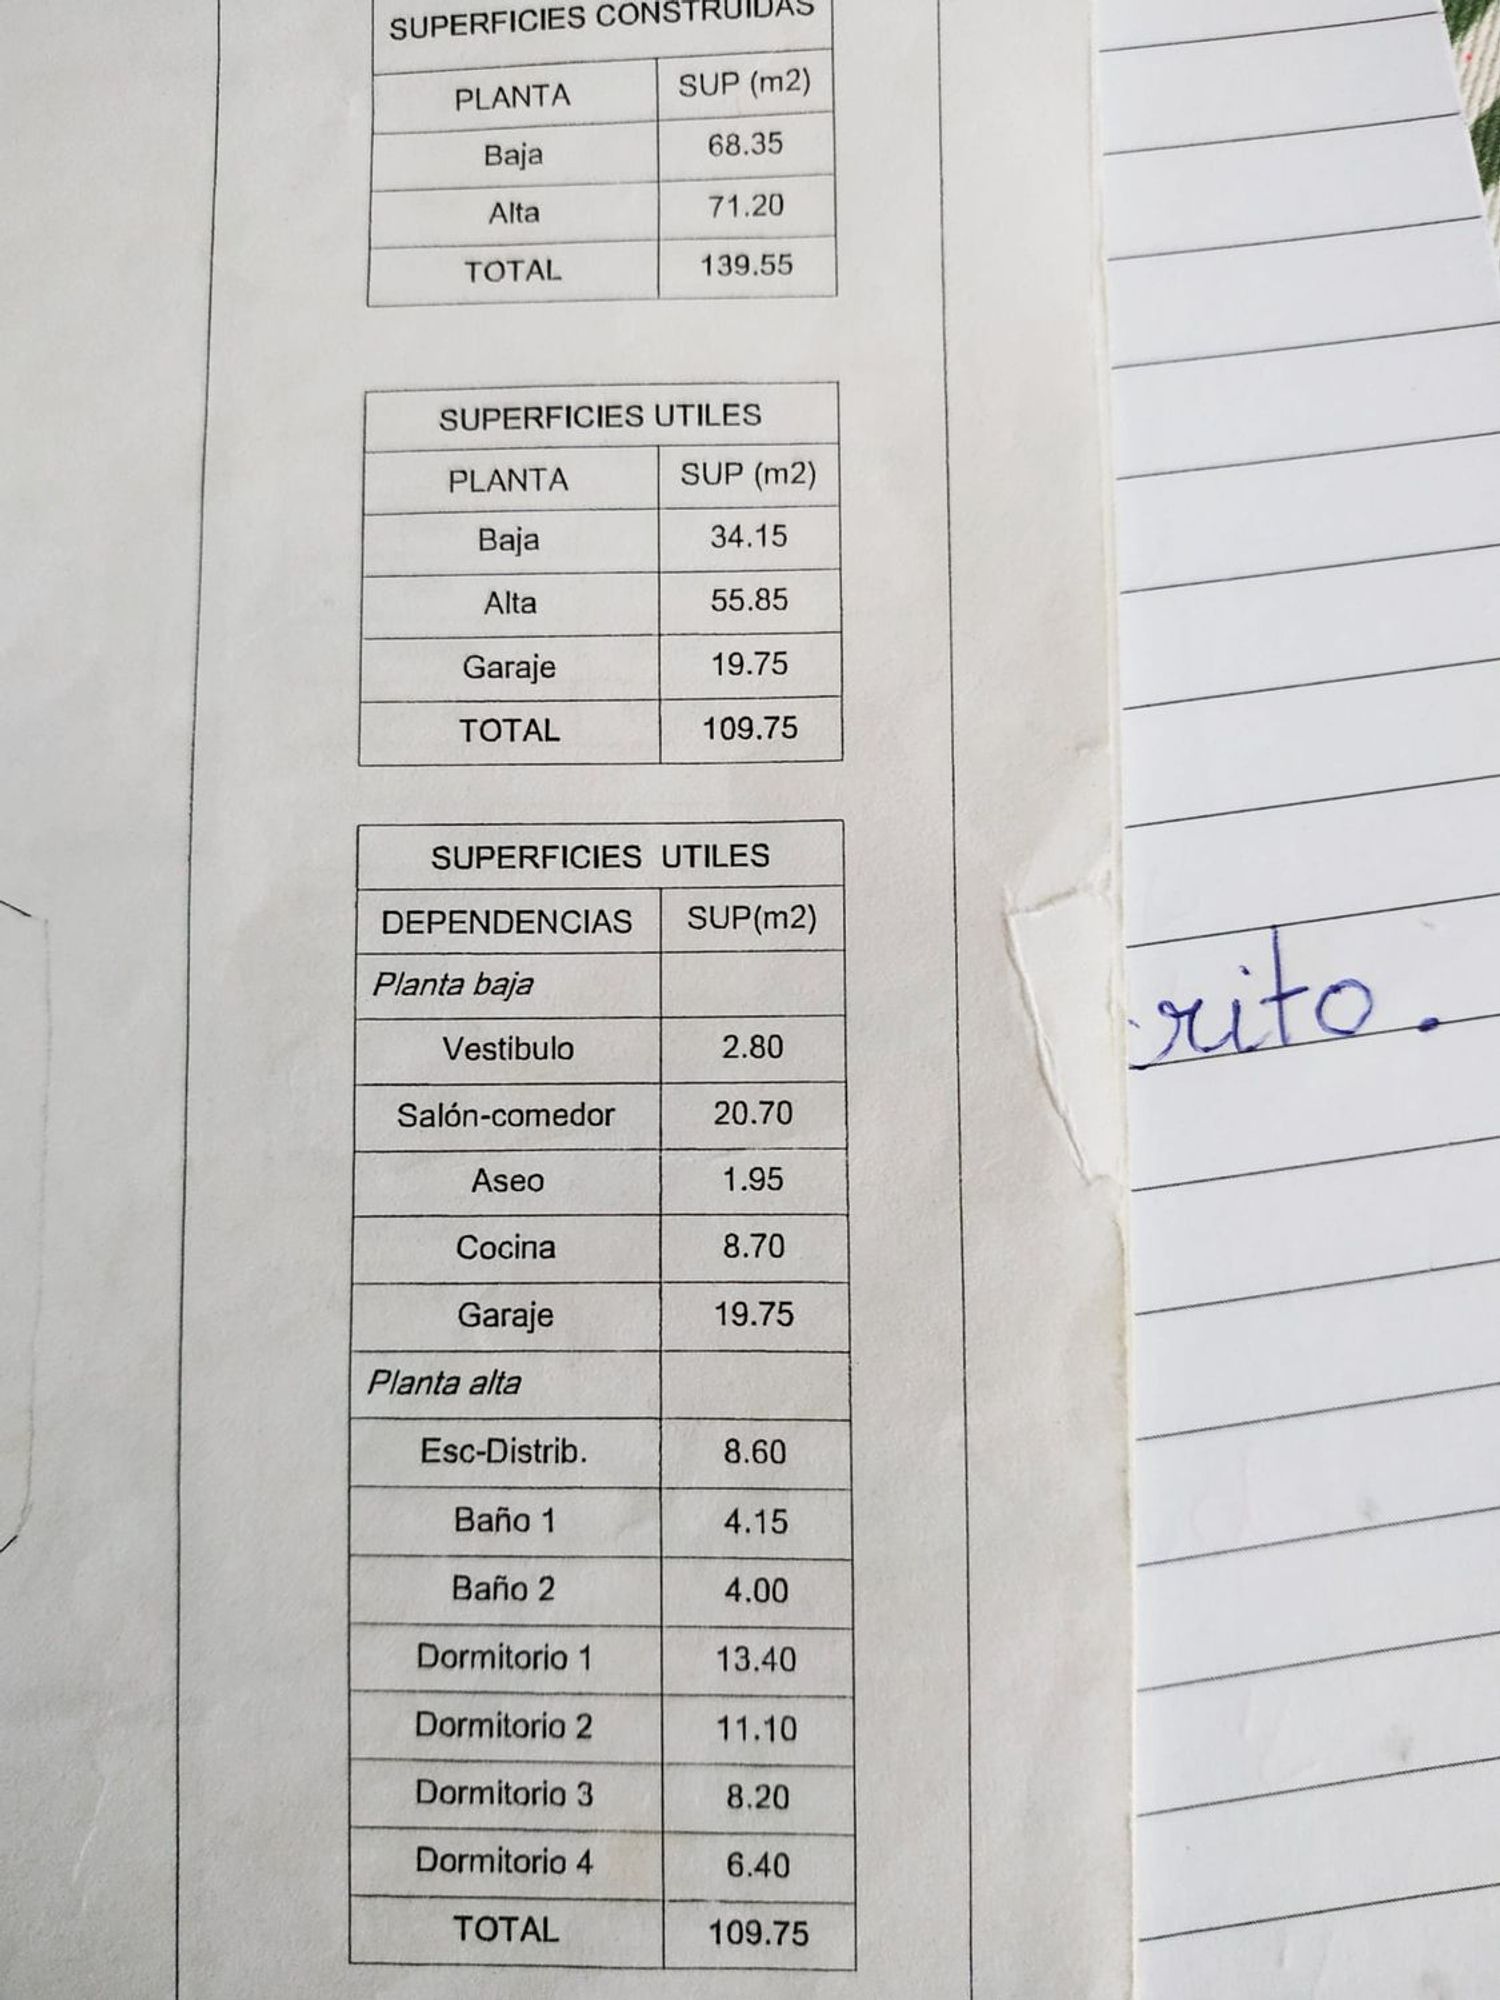 SUPERFICIES CONSTRUIDAS
PLANTA SUP (m2)
Baja 68.35
Alta 71.20
TOTAL 139.55
SUPERFICIES UTILES
PLANTA SUP (m2)
Baja 34.15
Alta 55.85
Garaje 19.75
TOTAL 109.75
SUPERFICIES UTILES
DEPENDENCIAS SUP(m2)
Planta baja
Vestibulo 2.80
Salón-comedor 20.70
Aseo 1.95
Cocina 8.70
Garaje 19.75
Planta alta
Esc-Distrib. 8.60
Baño 1 4.15
Baño 2 4.00
Dormitorio 1 13.40
Dormitorio 2 11.10
Dormitorio 3 8.20
Dormitorio 4 6.40
TOTAL 109.75
rito.